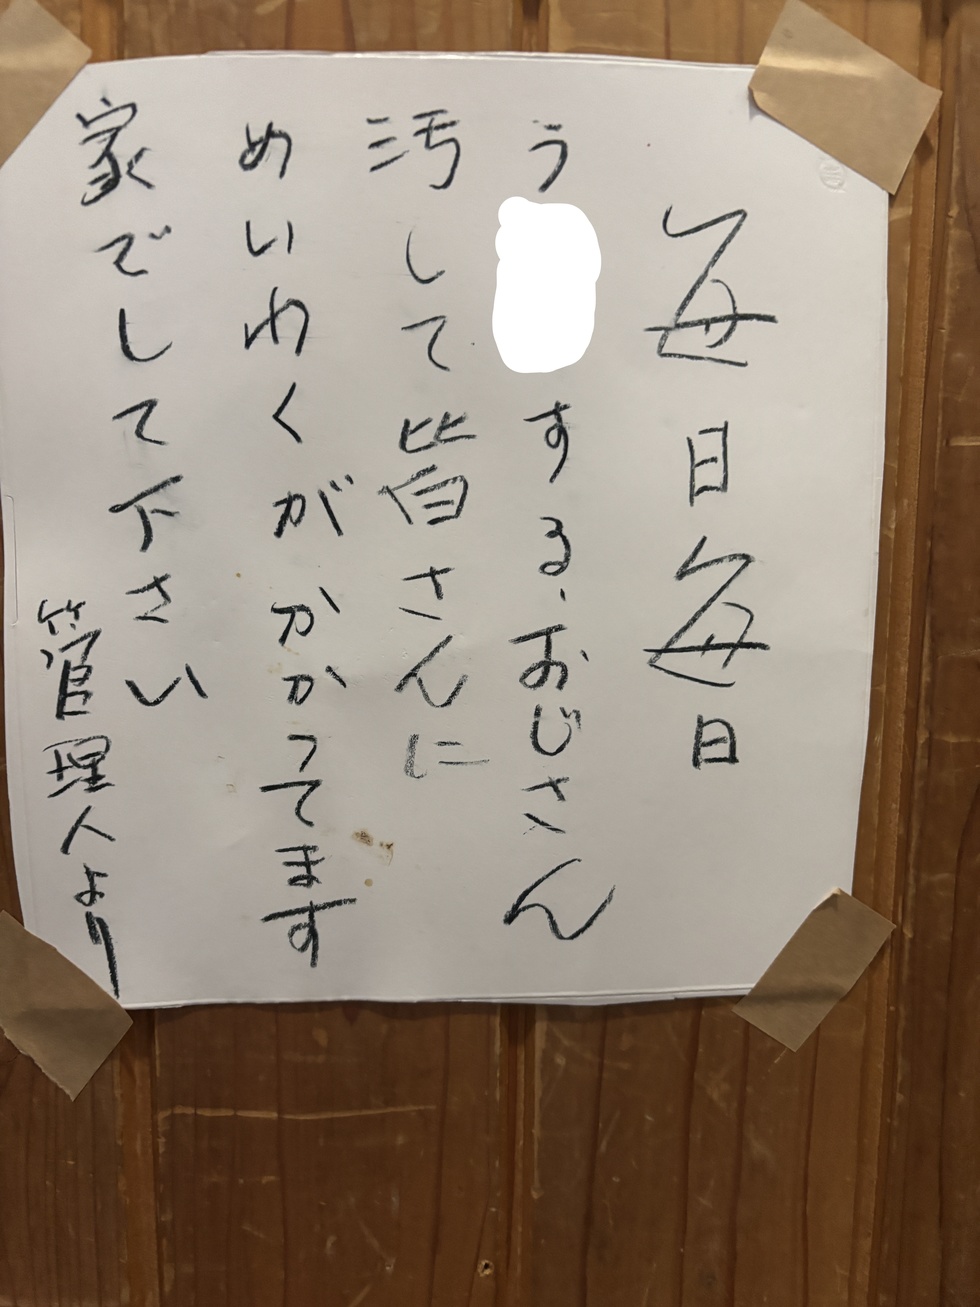 毎日毎日
う する、おじさん
汚して皆さんに
めいわくがかかってます
家でして下さい
管理人より